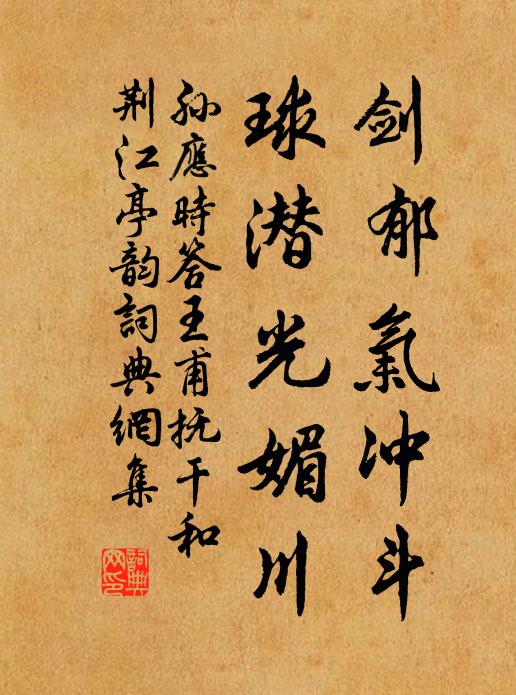 剑郁氣冲斗
球潜光媚川
孙應時答王甫抚干和
荆江亭韵詞典網集
詞典網印